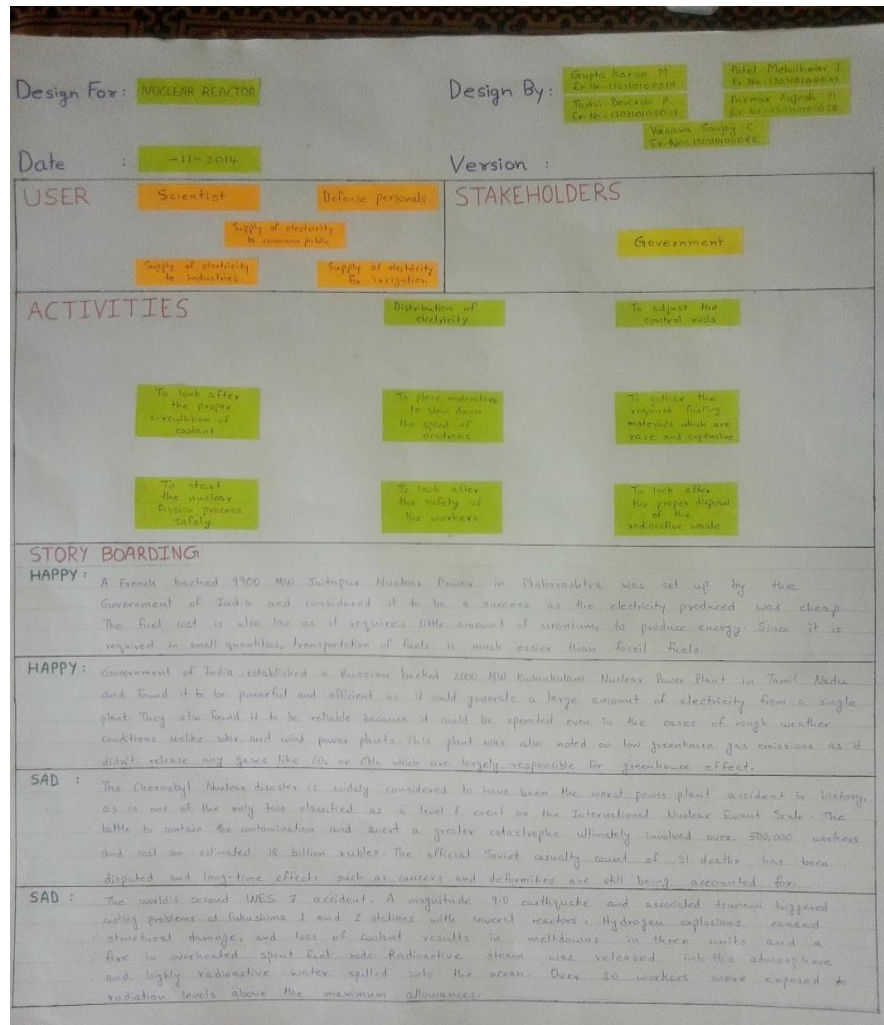 Design For: NUCLEAR REACTOR
Design By:
Gupta Karan M
Patel Mehulkumar J.
Tadvi Devendra P.
Parmar Rajesh M.
Vasava Sanjay C.
Date : -11-2014
Version :
USER
Scientist
Defense personals
Supply of electricity
to common public
Supply of electricity
to industries
Supply of electricity
for irrigation
STAKEHOLDERS
Government
ACTIVITIES
Distribution of
electricity
To adjust the
control rods
To look after
the proper
circulation of
coolant
To place moderators
to slow down
the speed of
neutrons
To gather the
required fueling
materials which are
rare and expensive
To start
the nuclear
fission process
safely
To look after
the safety of
the workers
To look after
the proper disposal
of the
radioactive waste
STORY BOARDING
HAPPY : A French backed 9900 MW Jaitapur Nuclear Power in Maharashtra was set up by the
Government of India and considered it to be a success as the electricity produced was cheap.
The fuel cost is also low as it requires little amount of uranium, to produce energy. Since it is
required in small quantities, transportation of fuels is much easier than fossil fuels.
HAPPY : Government of India established a Russian backed 2000 MW Kudankulam Nuclear Power Plant in Tamil Nadu
and found it to be powerful and efficient as it could generate a large amount of electricity from a single
plant. They also found it to be reliable because it could be operated even in the cases of rough weather
conditions unlike solar and wind power plants. This plant was also noted on low greenhouse gas emissions as it
didn't release any gases like CO₂ or CH₄ which are largely responsible for greenhouse effect.
SAD : The Chernobyl Nuclear disaster is widely considered to have been the worst power plant accident in history,
as is one of the only two classified as a level 7 event on the International Nuclear Event Scale. The
battle to contain the contamination and avert a greater catastrophe ultimately involved over 500,000 workers
and cost an estimated 18 billion rubles. The official Soviet casualty count of 31 deaths has been
disputed and long-time effects such as cancers and deformities are still being accounted for.
SAD : The world's second INES 7 accident. A magnitude 9.0 earthquake and associated tsunami triggered
cooling problems at Fukushima 1 and 2 stations with several reactors. Hydrogen explosions caused
structural damage, and loss of coolant results in meltdowns in three units and a
fire in overheated spent fuel rods. Radioactive steam was released into the atmosphere
and highly radioactive water spilled into the ocean. Over 30 workers were exposed to
radiation levels above the maximum allowances.